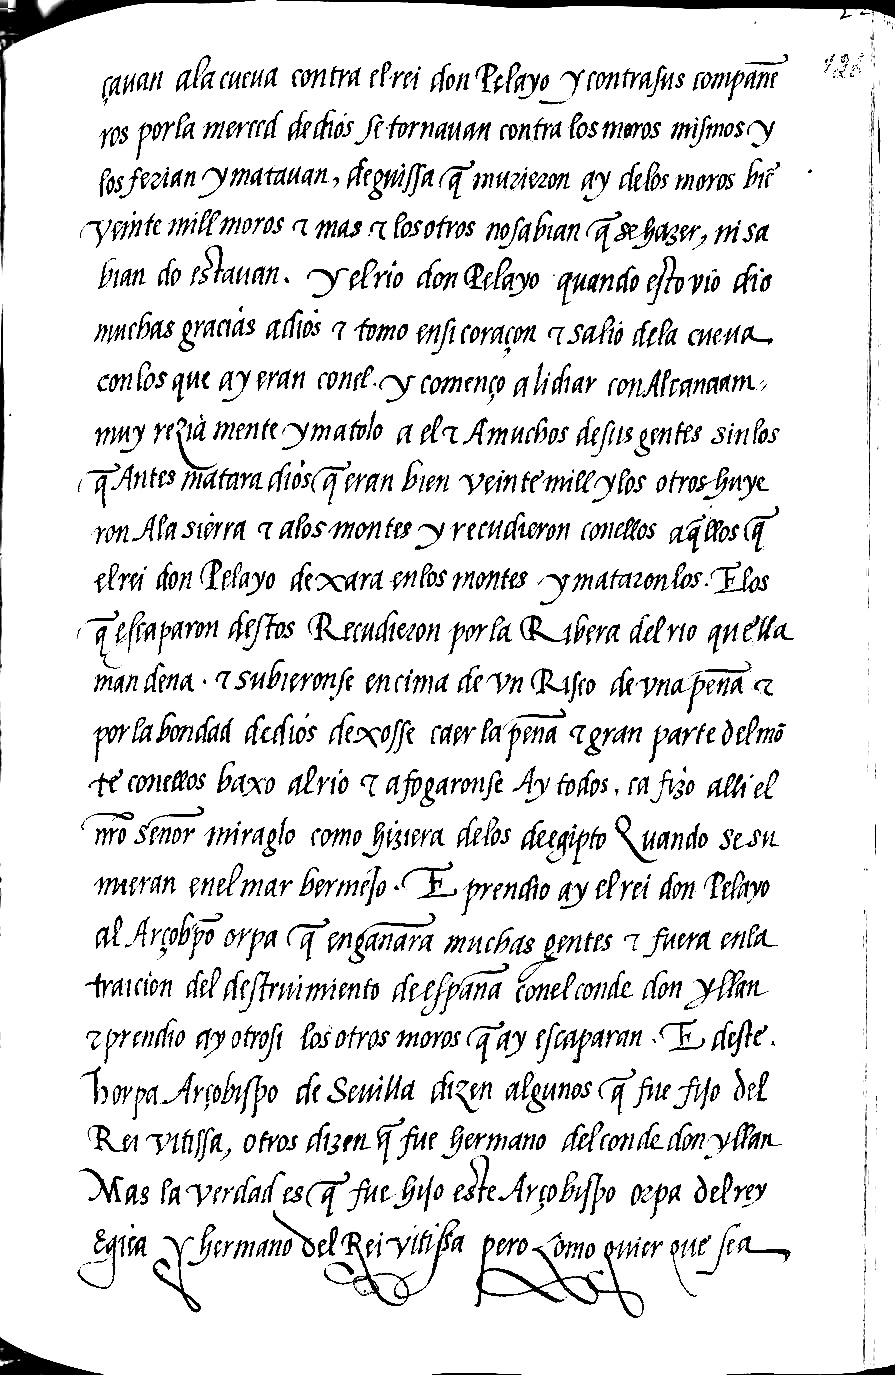 çauan ala cueua contra el rei don Pelayo y contra sus compañe
ros por la merced de dios se tornauan contra los moros mismos y
los ferian y matauan, de guissa q̃ murieron ay de los moros biẽ
veinte mill moros τ mas τ los otros no sabian q̃ se hazer, ni sa
bian do estauan. y el rio don Pelayo quando esto vio dio
muchas gracias a dios τ tomo en si coraçon τ salio de la cueua
con los que ay eran conel. y començo a lidiar con Alcanaam
muy rezia mente y matolo a el τ A muchos de sus gentes sin los
q̃ Antes matara dios q̃ eran bien veinte mill y los otros huye
ron Ala sierra τ a los montes y recudieron conellos aq̃llos q̃
el rei don Pelayo dexara en los montes y mataron los. E los
q̃ escaparon destos Recudieron por la Ribera del rio que lla
man dena. τ subieronse encima de vn Risco de vna peña τ
por la bondad de dios dexosse caer la peña τ gran parte del mõ
te conellos baxo al rio τ afogaronse Ay todos, ca fizo alli el
nr̃o señor miraglo como hiziera de los de egipto Quando se su
mieran en el mar bermejo. E prendio ay el rei don Pelayo
al Arçobp̃o orpa q̃ engañara muchas gentes τ fuera en la
traicion del destruimiento de españa con el conde don yllan
τ prendio ay otrosi los otros moros q̃ ay escaparan. E deste.
horpa Arçobispo de Seuilla dizen algunos q̃ fue fijo del
Rei vitissa, otros dizen q̃ fue hermano del conde don yllan
Mas la verdad es q̃ fue hijo este Arçobispo orpa del rey
Egica y hermano del Rei vitissa pero como quier que sea